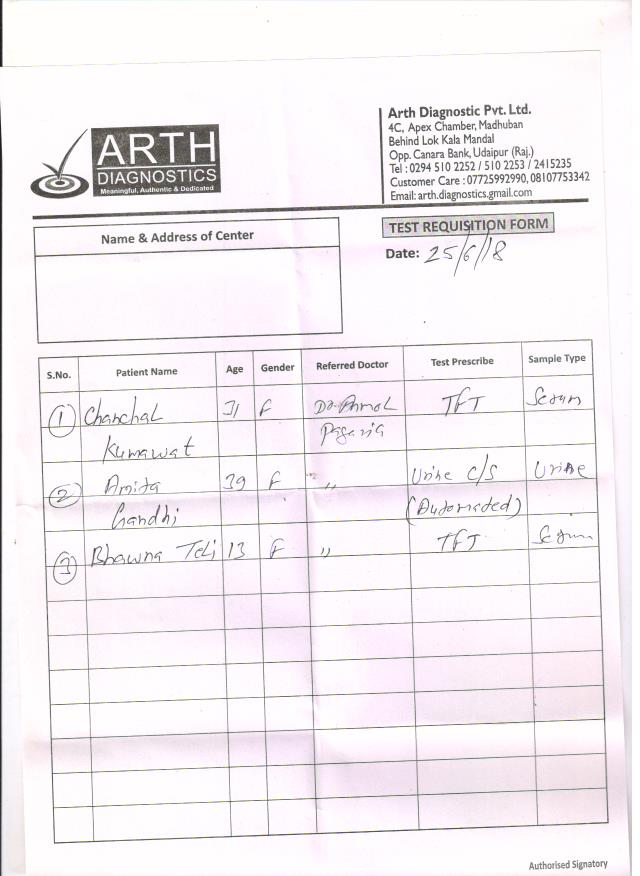 ARTH
DIAGNOSTICS
Meaningful, Authentic & Dedicated
Arth Diagnostic Pvt. Ltd.
4C, Apex Chamber, Madhuban
Behind Lok Kala Mandal
Opp. Canara Bank, Udaipur (Raj.)
Tel : 0294 510 2252 / 510 2253 / 2415235
Customer Care : 07725992990, 08107753342
Email: arth.diagnostics.gmail.com
Name & Address of Center
TEST REQUISITION FORM
Date: 25/6/18
S.No. Patient Name Age Gender Referred Doctor Test Prescribe Sample Type
1 Chanchal 31 F Dr. Anmol TFT Serum
Kumawat Pagaria
2 Amita 39 F " Urine C/S Urine
Gandhi (Automated)
3 Bhawna Teli 13 F " TFT Serum
Authorised Signatory